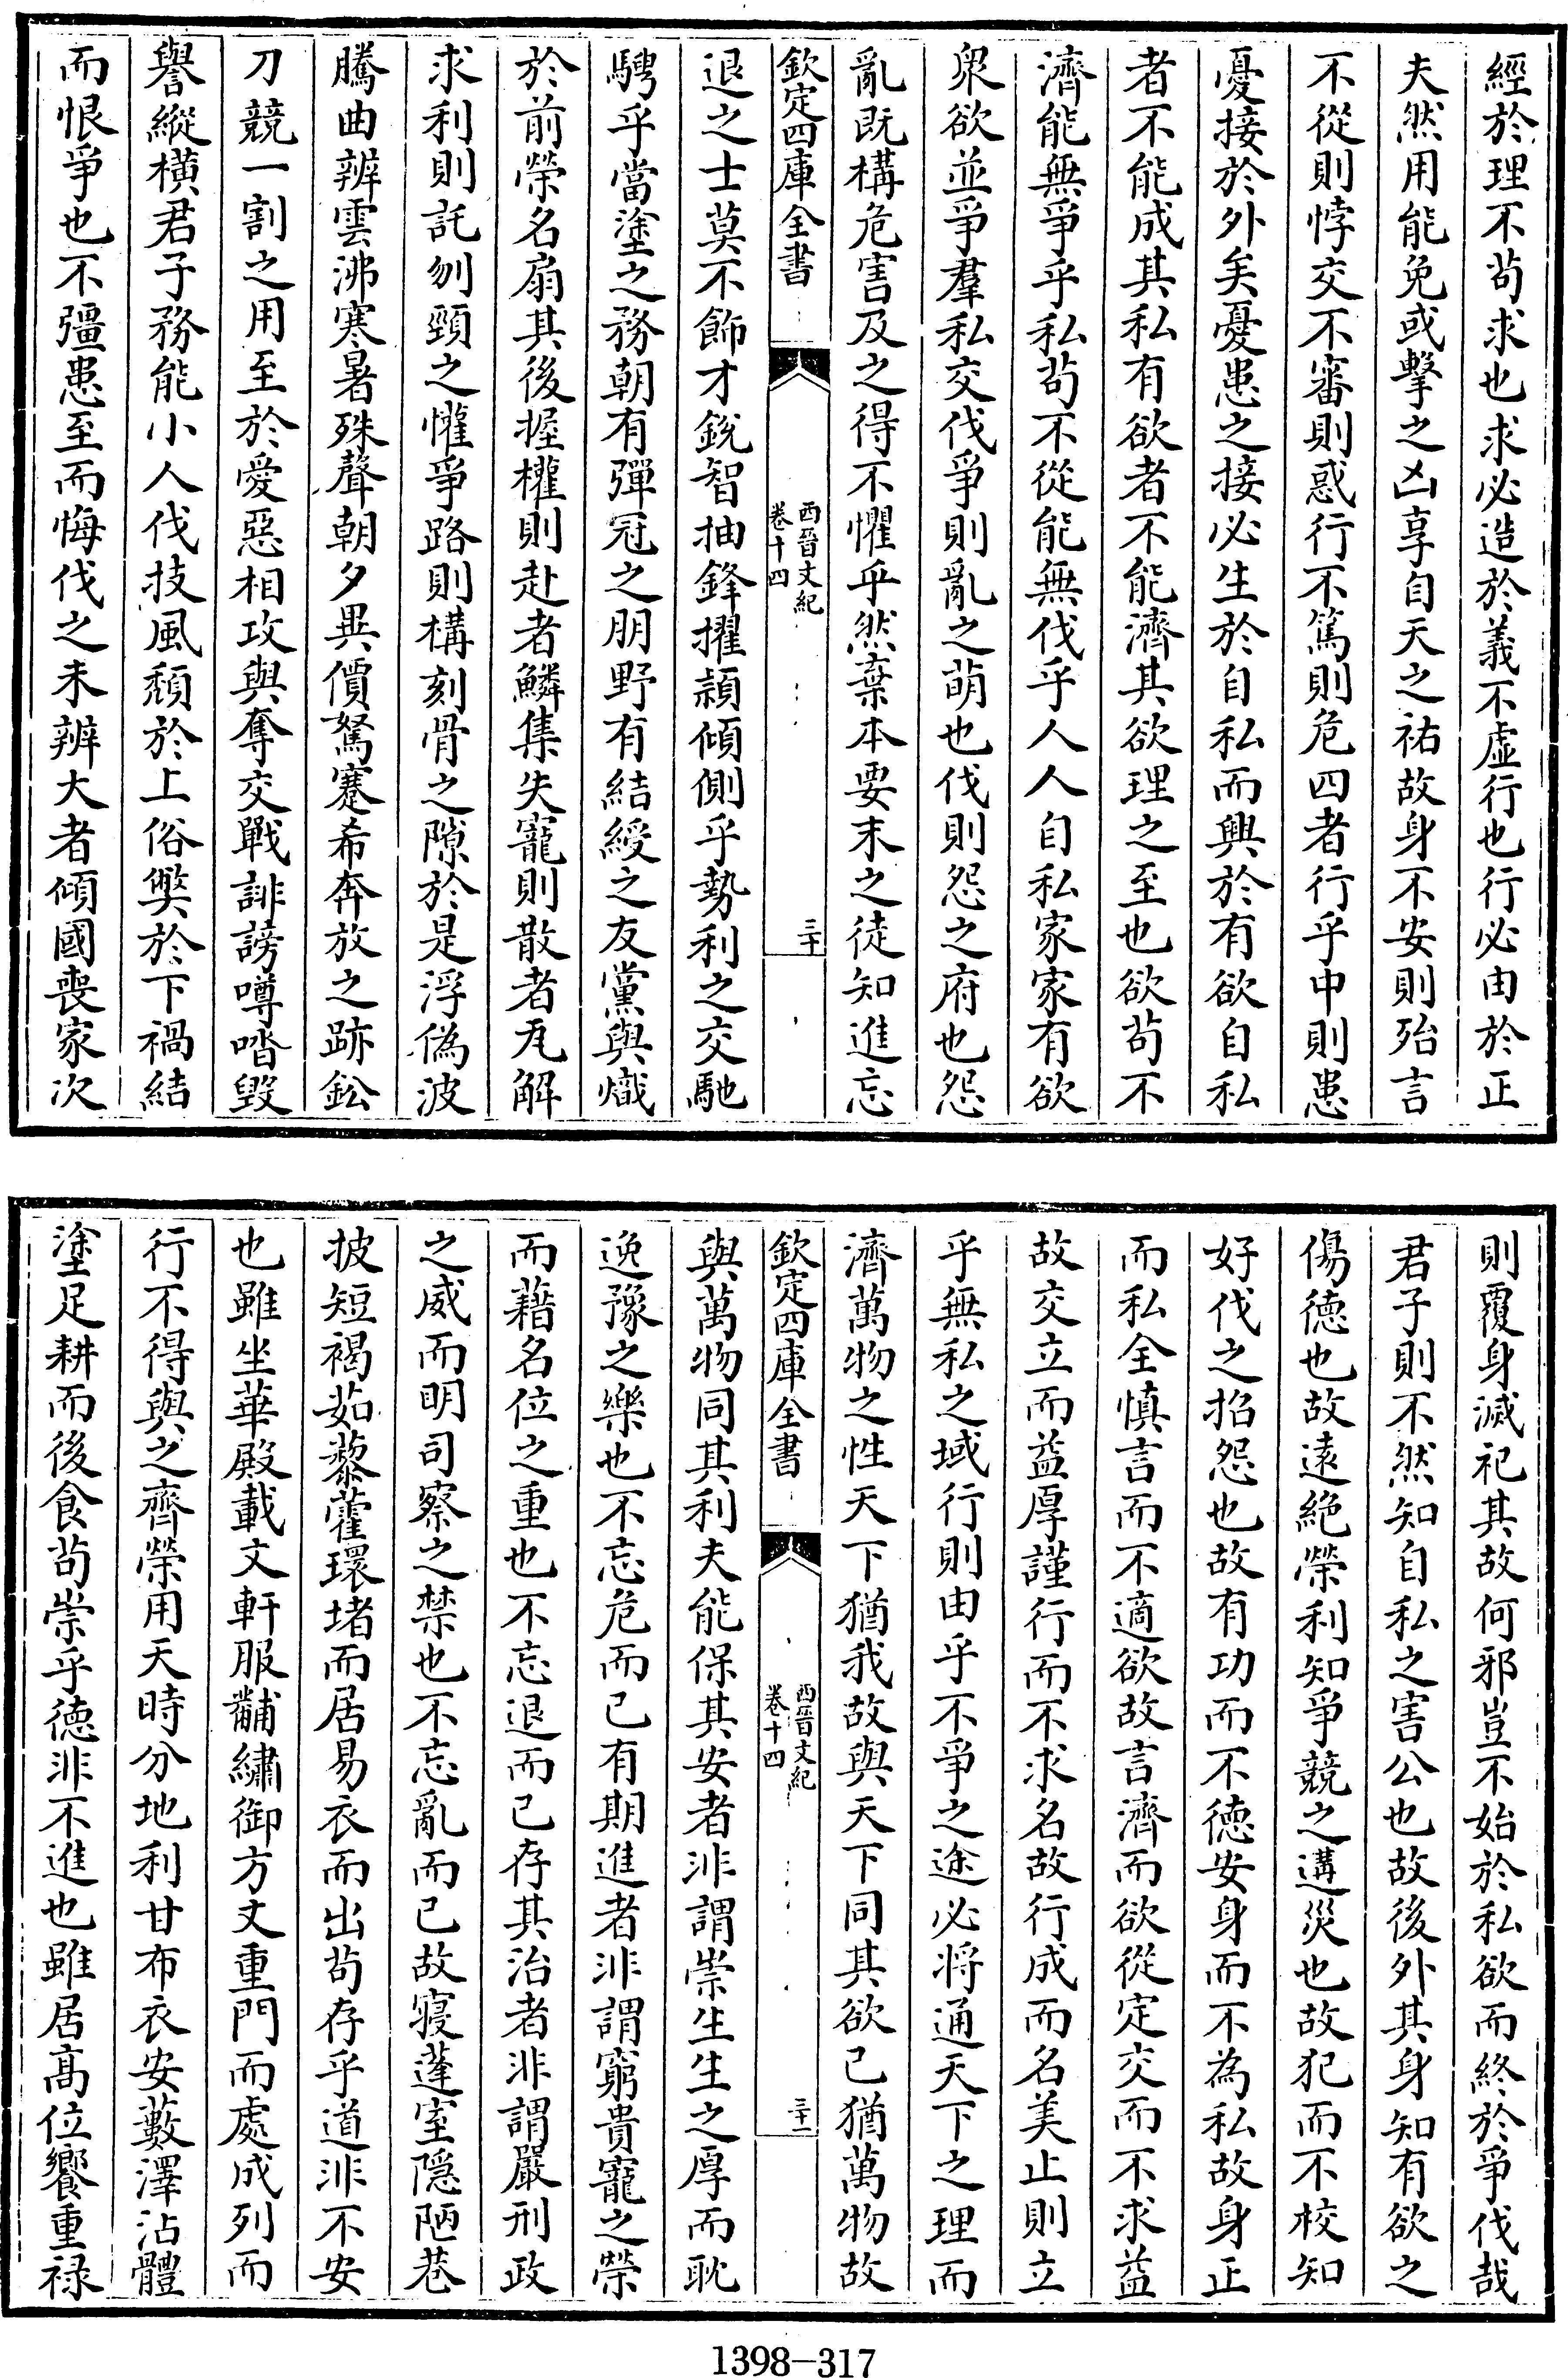 經於理不茍求也求必造於義不虛行也行必由於正
夫然用能免或擊之凶享自天之祐故身不安則殆言
不從則悖交不審則惑行不篤則危四者行乎中則患
憂接於外矣憂患之接必生於自私而興於有欲自私
者不能成其私有欲者不能濟其欲理之至也欲茍不
濟能無爭乎私茍不從能無伐乎人人自私家家有欲
衆欲並爭羣私交伐爭則亂之萌也伐則怨之府也怨
亂既構危害及之得不懼乎然棄本要末之徒知進忘
欽定四庫全書
西晉文紀
卷十四
三十
退之士莫不飾才銳智抽鋒擢穎傾側乎勢利之交馳
騁乎當塗之務朝有彈冠之朋野有結綬之友黨與熾
於前榮名扇其後握權則赴者鱗集失寵則散者瓦解
求利則託刎頸之懽爭路則構刻骨之隙於是浮偽波
騰曲辨雲沸寒暑殊聲朝夕異價駑蹇希奔放之跡鈆
刀競一割之用至於愛惡相攻與奪交戰誹謗噂𠴲毀
譽縱橫君子務能小人伐技風頹於上俗獘於下禍結
而恨爭也不彊患至而悔伐之未辨大者傾國喪家次
則覆身滅祀其故何邪豈不始於私欲而終於爭伐哉
君子則不然知自私之害公也故後外其身知有欲之
傷德也故遠絶榮利知爭競之遘災也故犯而不校知
好伐之招怨也故有功而不德安身而不為私故身正
而私全慎言而不適欲故言濟而欲從定交而不求益
故交立而益厚謹行而不求名故行成而名美止則立
乎無私之域行則由乎不爭之途必將通天下之理而
濟萬物之性天下猶我故與天下同其欲已猶萬物故
欽定四庫全書
西晉文紀
卷十四
三十一
與萬物同其利夫能保其安者非謂崇生生之厚而耽
逸豫之樂也不忘危而已有期進者非謂窮貴寵之榮
而藉名位之重也不忘退而已存其治者非謂嚴刑政
之威而明司察之禁也不忘亂而已故寢蓬室隱陋巷
披短褐茹藜藿環堵而居易衣而出茍存乎道非不安
也雖坐華殿載文軒服黼繡御方丈重門而處成列而
行不得與之齊榮用天時分地利甘布衣安藪澤沾體
塗足耕而後食茍崇乎德非不進也雖居髙位饗重祿
1398-317